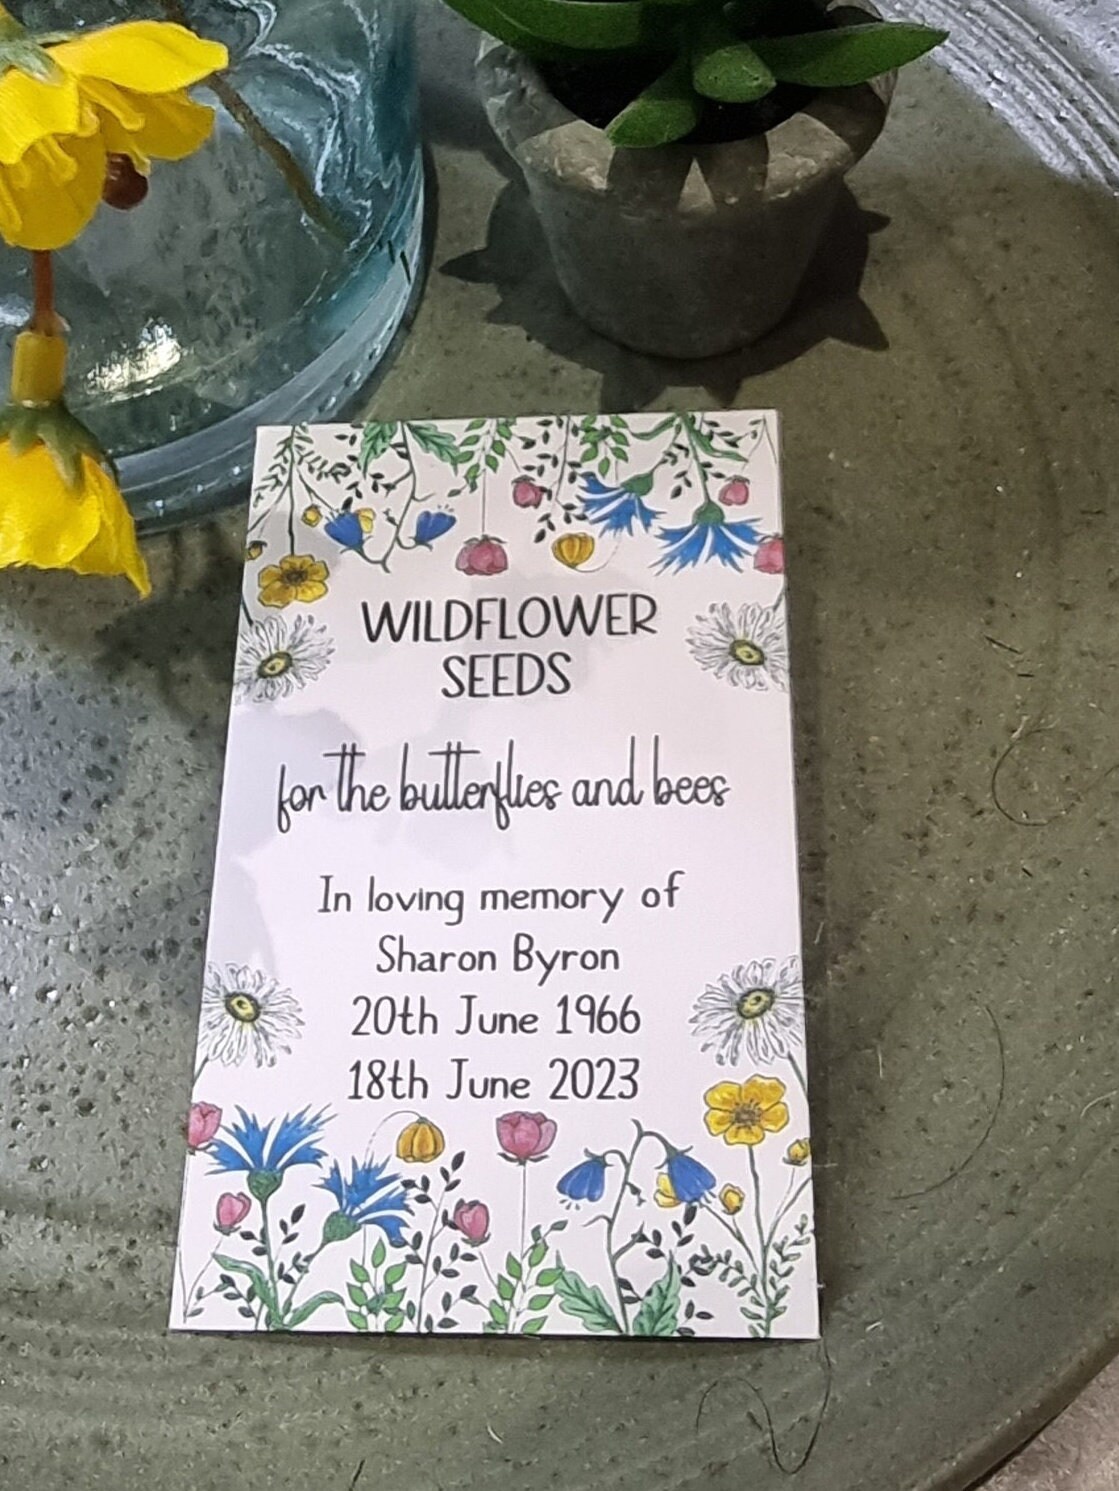 WILDFLOWER
SEEDS
for the butterflies and bees
In loving memory of
Sharon Byron
20th June 1966
18th June 2023